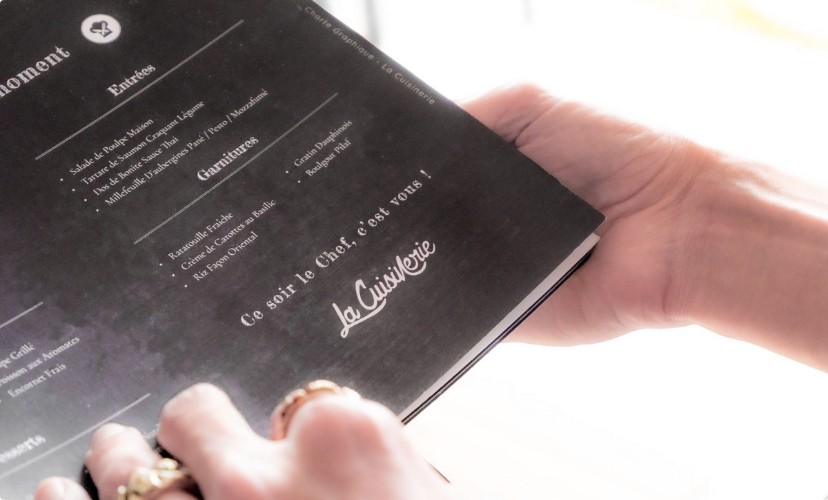 moment
Charte Graphique - La Cuisinerie
Entrées
Salade de Poulpe Maison
Tartare de Saumon Craquant Légume
Dos de Bonite Sauce Thaï
Millefeuille D'aubergines Pané / Pesto / Mozzafumé
Garnitures
RataTouille Fraiche
Crème de Carottes au Basilic
Riz Façon Oriental
Gratin Dauphinois
Boulgour Pilaf
Ce soir le Chef, c'est vous !
La Cuisinerie
Grillé
aux Aromates
Encornet Frais